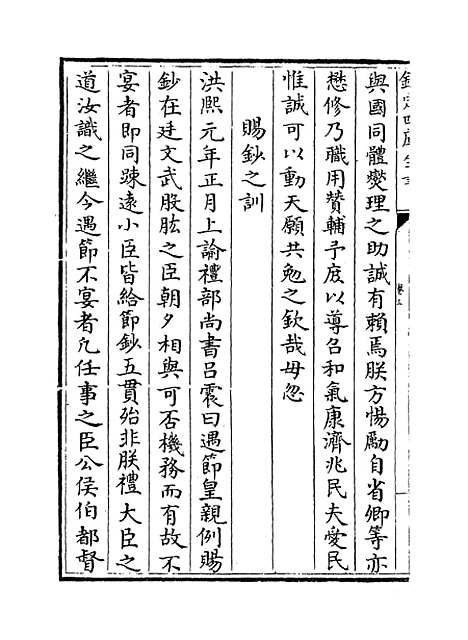 欽定四庫全書
卷五
與國同體燮理之助誠有賴焉朕方惕勵自省卿等亦
懋修乃職用賛輔予庶以導召和氣康濟兆民夫愛民
惟誠可以動天願共勉之欽哉毋忽
賜鈔之訓
洪熙元年正月上諭禮部尚書吕震曰遇節皇親例賜
鈔在廷文武股肱之臣朝夕相與可否機務而有故不
宴者即同踈遠小臣皆給節鈔五貫殆非朕禮大臣之
道汝識之繼今遇節不宴者凡任事之臣公侯伯都督